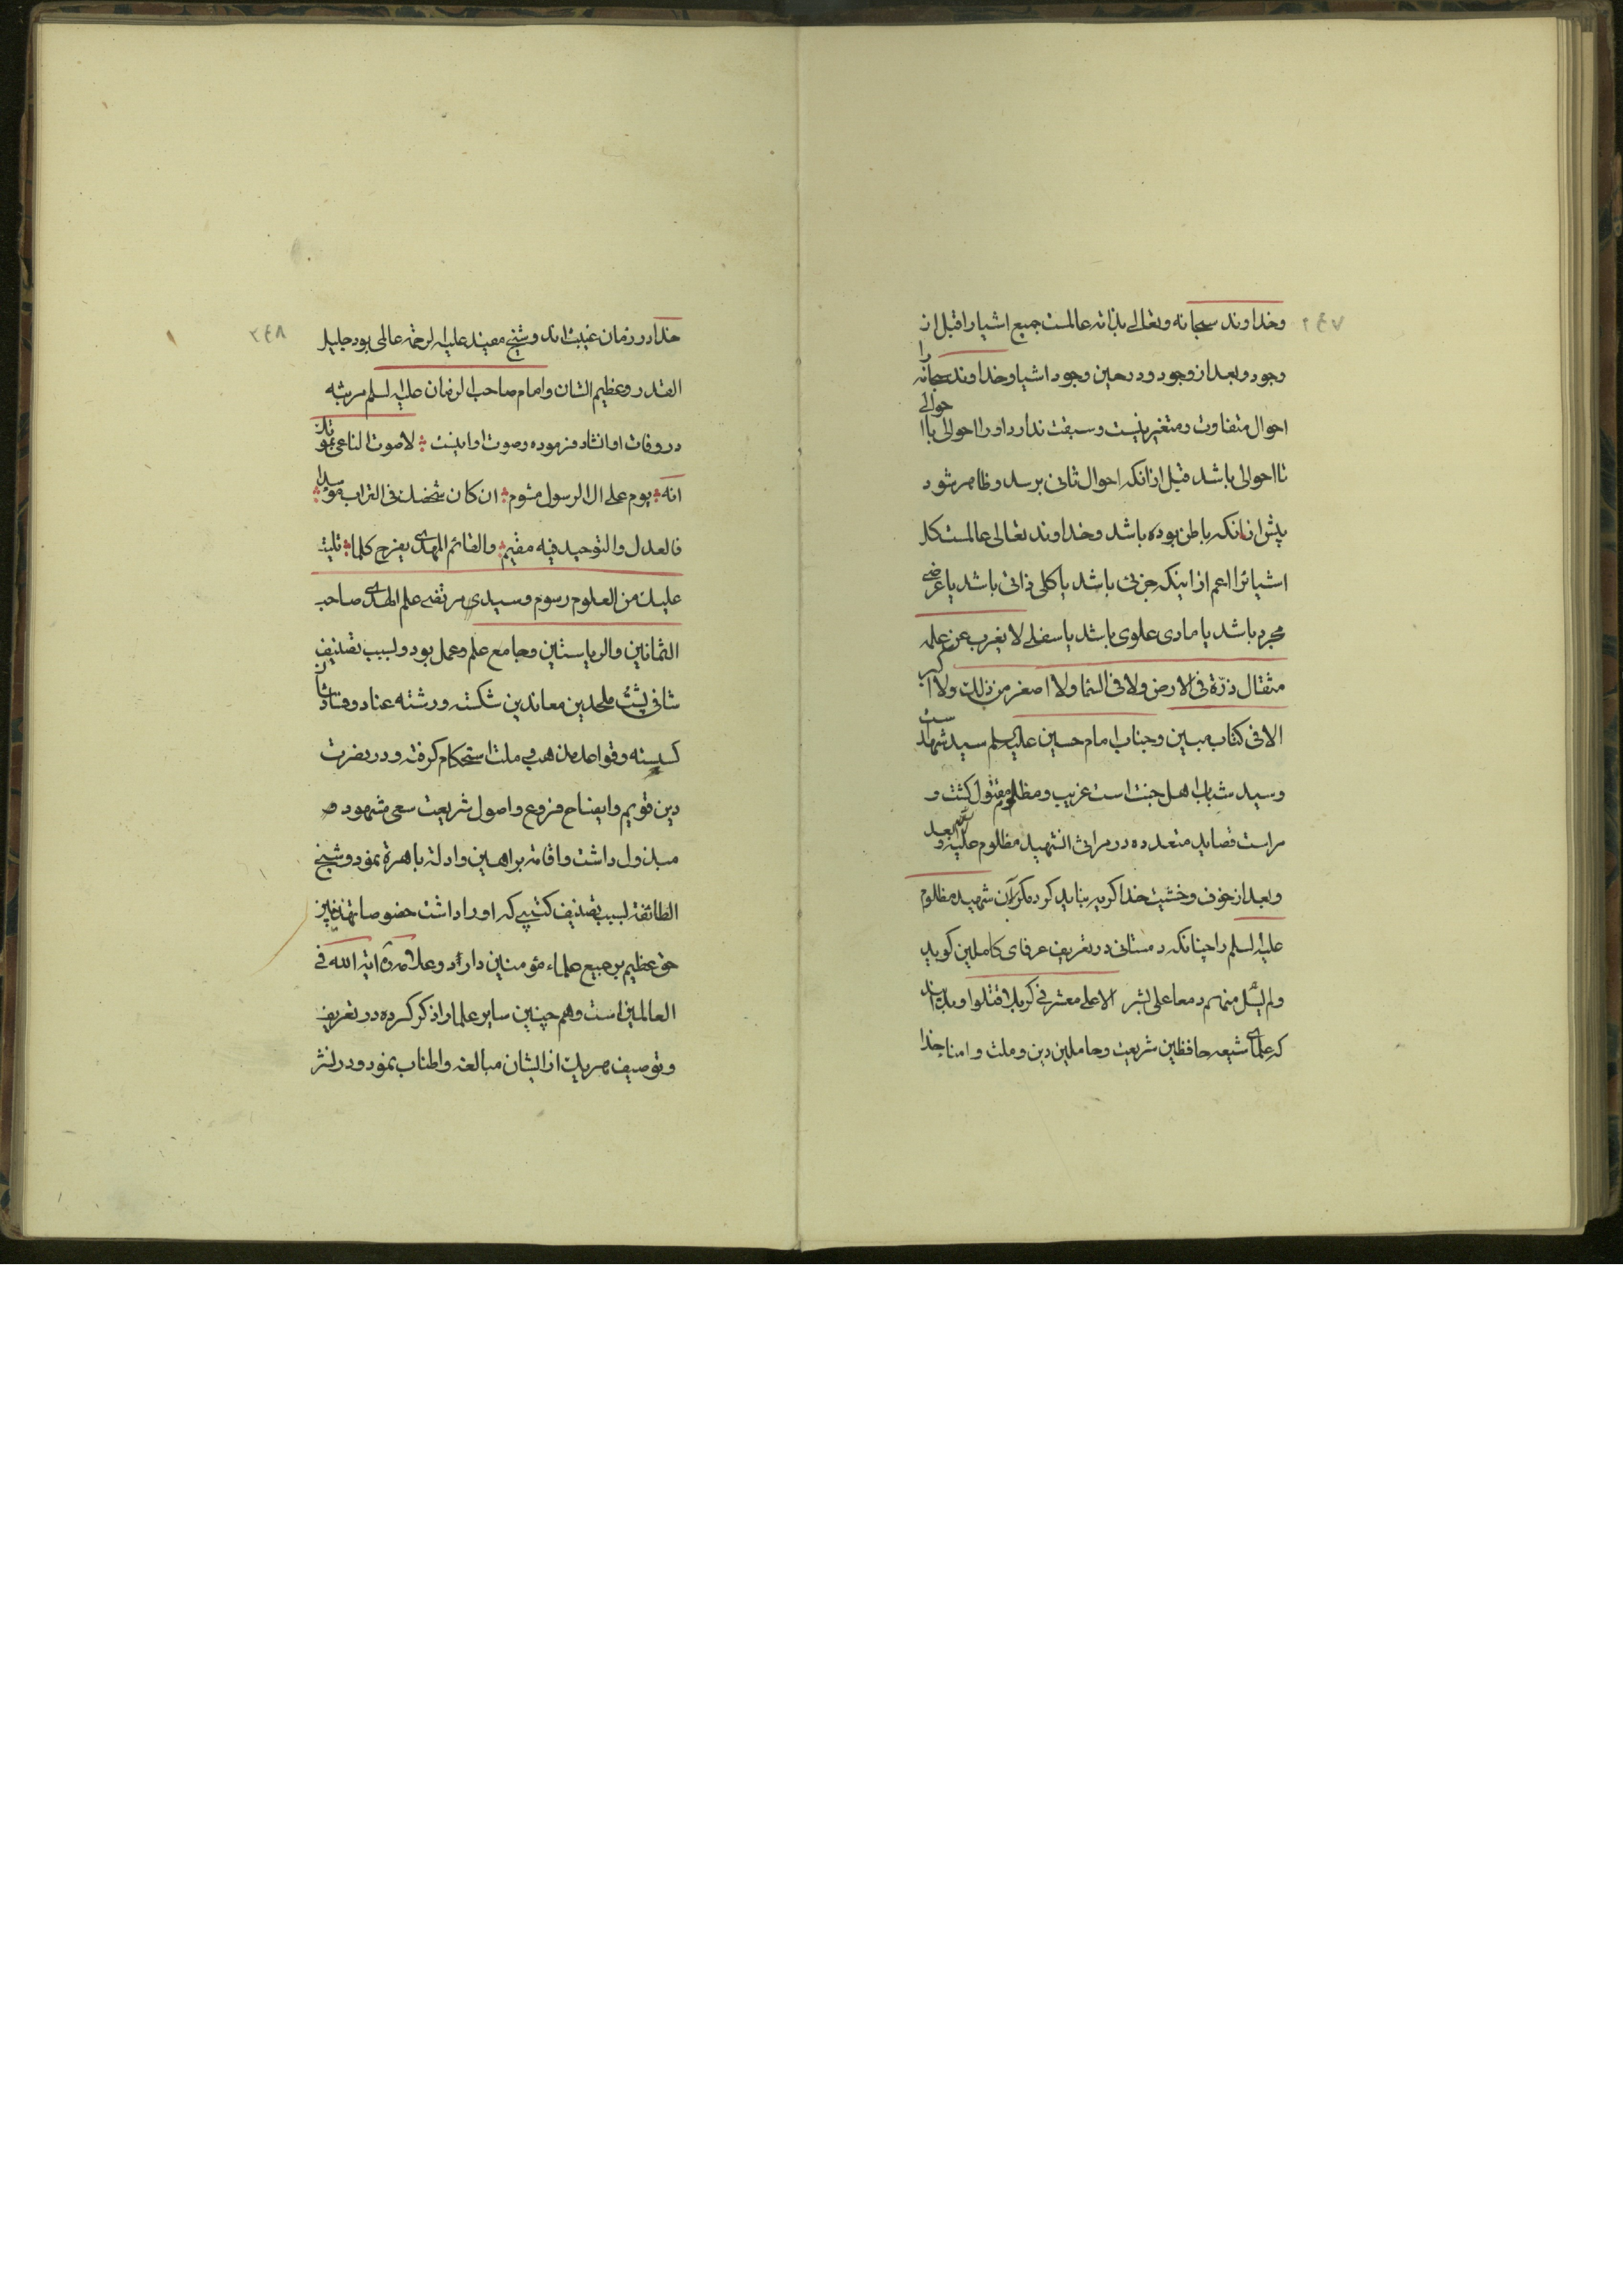 ۲٤۷
وخداوند سبحانه وتعالی بذاته عالمست جمیع اشیا را قبل از
وجود و بعد از وجود و در حین وجود اشیا و خداوند سبحانه را
احوال متفاوت و متغیر نیست و سبقت ندارد او را احوالی با احوالی
تا احوالی باشد قبل از انکه احوال ثانی برسد و ظاهر شود
پیش از انکه باطن بوده باشد و خداوند تعالی عالمست کل
اشیا را اعم از اینکه جزئی باشد یا کلی ذاتی باشد یا عرضی
مجرد باشد یا مادی علوی باشد یا سفلی لا یغرب عن علمه
مثقال ذرّة فی الارض ولا فی السما ولا اصغر من ذلک ولا اکبر
الا فی کتاب مبین و جناب امام حسین علیه السلم سید شهداست
وسید شباب اهل جنت است غریب و مظلوم مقتول کشت و
مراست قصاید متعدده در مراثی الشهید مظلوم علیه
وبعد از خوف و خشیت خدا کریه نباید کرد مکر بران شهید مظلوم
علیه السلم را چنانکه دمستانی در تعریف عرفای کاملین کوید
ولم یسل منهم دمعا علی بشر الا علی معشر فی کربلا قتلوا و بدانند
که علمای شیعه حافظین شریعت و حاملین دین و ملت و امنا خدا
۲٤۸
خدا در زمان غیبت اند و شیخ مفید علیه الرحمه عالمی بود جلیل
القدر و عظیم الشان و امام صاحب الزمان علیه السلم مرثیه
در وفات او انشاد فرموده و صوت او اینست لا صوت الناعی بفقدک
انه یوم علی ال الرسول مشوم ان کان شخصک فی التراب موسدا
فالعدل والتوحید فیه مقیم والقائم المهدی یفرح کلما تلیت
علیک من العلوم رسوم و سیدی مرتضی علم الهدی صاحب
الثمانین والریاستین و جامع علم و عمل بود و لسبب تصنیف
شافی پشت ملحدین معاندین شکسته و رشته عناد و فسادشان
کسیسته و قواعد مذهب و ملت استحکام کرفته و در نصرت
دین قویم و ایضاح فروع و اصول شریعت سعی مشهود و
مبذول داشت و اقامة براهین و ادلة باهرة نمود و شیخ
الطائفة لسبب تصنیف کتبی که او را داشت خصوصا تهذیبین
حق عظیم بر جمیع علماء مؤمنین دارد و علامه ره ایة الله فی
العالمین است و هم چنین سایر علما را ذکر کرده در تعریف
و توصیف هر یک از ایشان مبالغه و اطناب نمود و در نشر